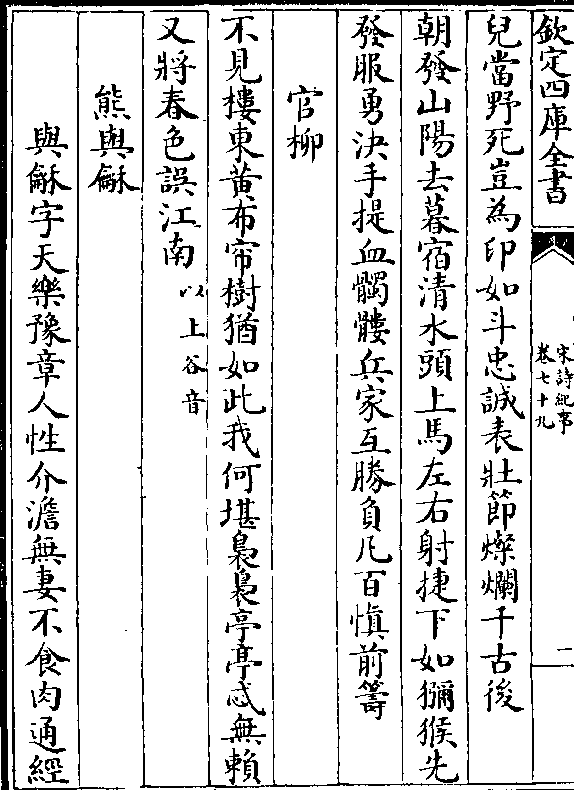 欽定四庫全書
宋詩紀事
卷七十九
二
兒當野死豈為印如斗忠誠表壯節燦爛千古後
朝發山陽去暮宿清水頭上馬左右射捷下如獼猴先
發服勇決手提血髑髏兵家互勝負凡百慎前籌
官柳
不見樓東黃布帘樹猶如此我何堪裊裊亭亭忒無賴
又將春色誤江南以上谷音
熊與龢
與龢字天樂豫章人性介澹無妻不食肉通經